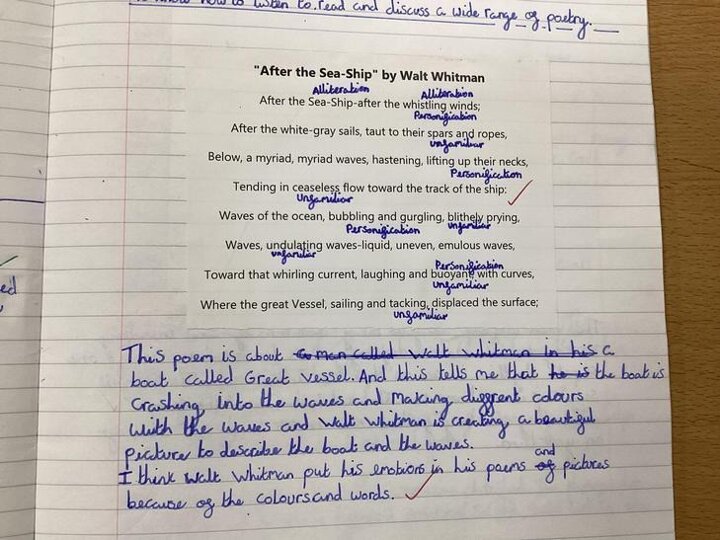 to know how to listen to, read and discuss a wide range of poetry.
"After the Sea-Ship" by Walt Whitman
Alliteration Alliteration
After the Sea-Ship-after the whistling winds;
Personification
After the white-gray sails, taut to their spars and ropes,
unfamiliar
Below, a myriad, myriad waves, hastening, lifting up their necks,
Personification
Tending in ceaseless flow toward the track of the ship:
Unfamiliar
Waves of the ocean, bubbling and gurgling, blithely prying,
Personification unfamiliar
Waves, undulating waves-liquid, uneven, emulous waves,
unfamiliar Personification
Toward that whirling current, laughing and buoyant with curves,
unfamiliar
Where the great Vessel, sailing and tacking, displaced the surface;
unfamiliar
ed
This poem is about a man called Walt Whitman in his a
boat called Great Vessel. And this tells me that he is the boat is
crashing into the waves and making diffrent colours
with the waves and Walt Whitman is creating a beautiful
picture to describe the boat and the waves.
I think Walt Whitman put his emobiors in his poems of and pictures
because of the colours and words.